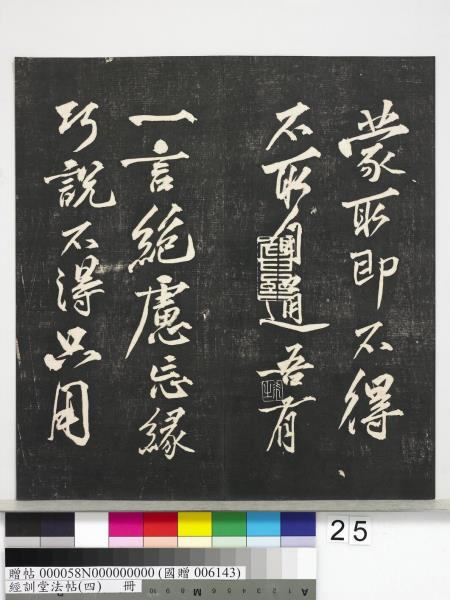 蒙取即不得
不取自通吾有
一言絶慮忘緣
巧說不得只用
25
贈帖 000058N000000000 (國贈 006143)
經訓堂法帖(四) 冊